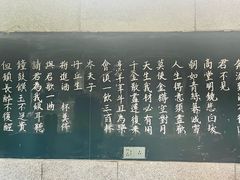 君不見
高堂明鏡悲白髮
朝如青絲暮成雪
人生得意須盡歡
莫使金樽空對月
天生我材必有用
千金散盡還復來
烹羊宰牛且為樂
會須一飲三百杯
岑夫子
丹丘生
將進酒 杯莫停
與君歌一曲
請君為我傾耳聽
鐘鼓饌玉不足貴
但願長醉不復醒